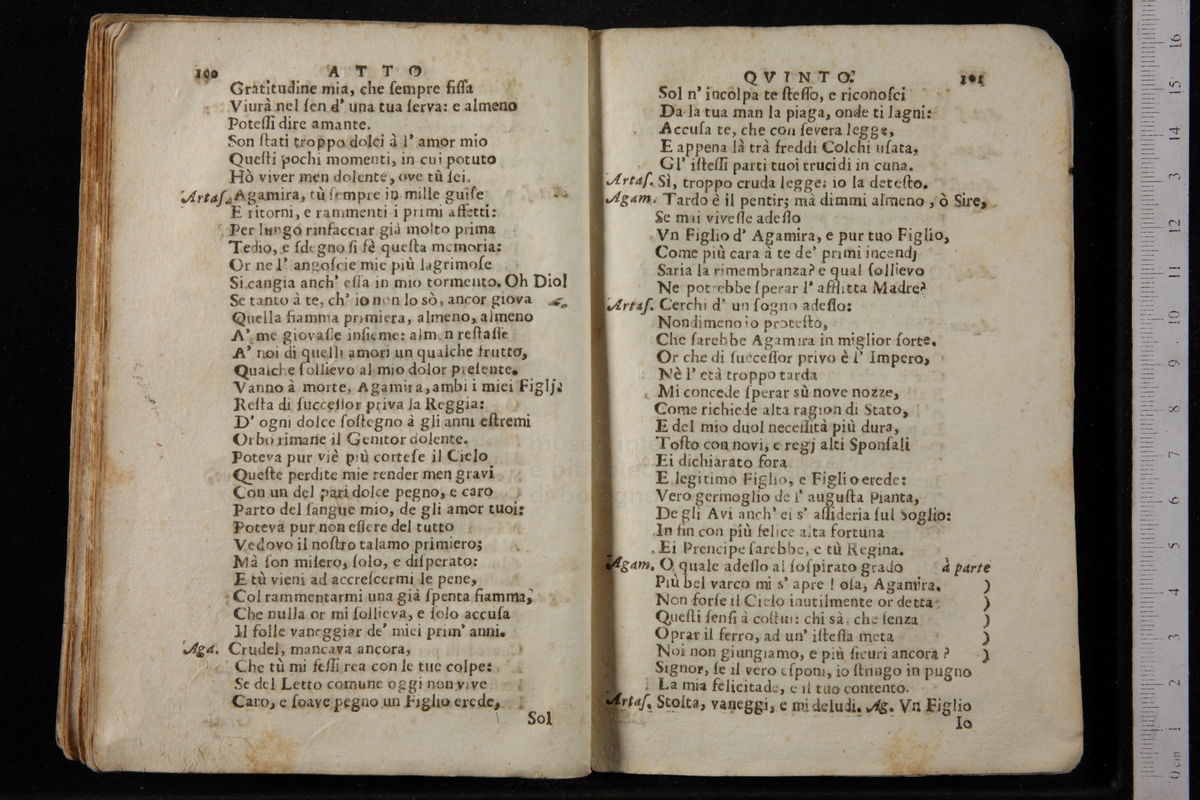 100 ATTO
Gratitudine mia, che ſempre fiſſa
Viurà nel ſen d' una tua ſerva: e almeno
Poteſſi dire amante.
Son ſtati troppo dolci à l' amor mio
Queſti pochi momenti, in cui potuto
Hò viver men dolente, ove tù ſei.
Artaſ. Agamira, tù ſempre in mille guiſe
E ritorni, e rammenti i primi affetti:
Per lungo rinfacciar già molto prima
Tedio, e ſdegno ſi fè queſta memoria:
Or ne l' angoſcie mie più lagrimoſe
Si cangia anch' eſſa in mio tormento. Oh Dio!
Se tanto à te, ch' io non lo sò, ancor giova
Quella fiamma primiera, almeno, almeno
A' me giovaſſe inſieme: almen reſtaſſe
A' noi di quelli amori un qualche frutto,
Qualche ſollievo al mio dolor preſente.
Vanno à morte, Agamira, ambi i miei Figlj:
Reſta di ſucceſſor priva la Reggia:
D' ogni dolce ſoſtegno à gli anni eſtremi
Orbo rimane il Genitor dolente.
Poteva pur viè più corteſe il Cielo
Queſte perdite mie render men gravi
Con un del pari dolce pegno, e caro
Parto del ſangue mio, de gli amor tuoi:
Poteva pur non eſſere del tutto
Vedovo il noſtro talamo primiero;
Mà ſon miſero, ſolo, e diſperato:
E tù vieni ad accreſcermi le pene,
Col rammentarmi una già ſpenta fiamma,
Che nulla or mi ſollieva, e ſolo accuſa
Il folle vaneggiar de' miei prim' anni.
Aga. Crudel, mancava ancora,
Che tù mi feſſi rea con le tue colpe:
Se del Letto comune oggi non vive
Caro, e ſoave pegno un Figlio erede,
Sol
QVINTO. 101
Sol n' incolpa te ſteſſo, e riconoſci
Da la tua man la piaga, onde ti lagni:
Accuſa te, che con ſevera legge,
E appena là trà freddi Colchi uſata,
Gl' iſteſſi parti tuoi trucidi in cuna.
Artaſ. Sì, troppo cruda legge: io la deteſto.
Agam. Tardo è il pentir; mà dimmi almeno, ò Sire,
Se mai viveſſe adeſſo
Vn Figlio d' Agamira, e pur tuo Figlio,
Come più cara à te de' primi incendj
Saria la rimembranza? e qual ſollievo
Ne potrebbe ſperar l' afflitta Madre?
Artaſ. Cerchi d' un ſogno adeſſo:
Nondimeno io proteſto,
Che ſarebbe Agamira in miglior ſorte.
Or che di ſucceſſor privo è l' Impero,
Nè l' età troppo tarda
Mi concede ſperar sù nove nozze,
Come richiede alta ragion di Stato,
E del mio duol neceſſità più dura,
Toſto con novi, e regj alti Sponſali
Ei dichiarato fora
E legitimo Figlio, e Figlio erede:
Vero germoglio de l' auguſta Pianta,
De gli Avi anch' ei s' aſſideria ſul Soglio:
In fin con più felice alta fortuna
Ei Prencipe ſarebbe, e tù Regina.
Agam. O quale adeſſo al ſoſpirato grado à parte
Più bel varco mi s' apre! oſa, Agamira. )
Non forſe il Cielo inutilmente or detta )
Queſti ſenſi à coſtui: chi sà, che ſenza )
Oprar il ferro, ad un' iſteſſa meta )
Noi non giungiamo, e più ſicuri ancora? )
Signor, ſe il vero eſponi, io ſtringo in pugno
La mia felicitade, e il tuo contento.
Artaſ. Stolta, vaneggi, e mi deludi. Ag. Vn Figlio
Io